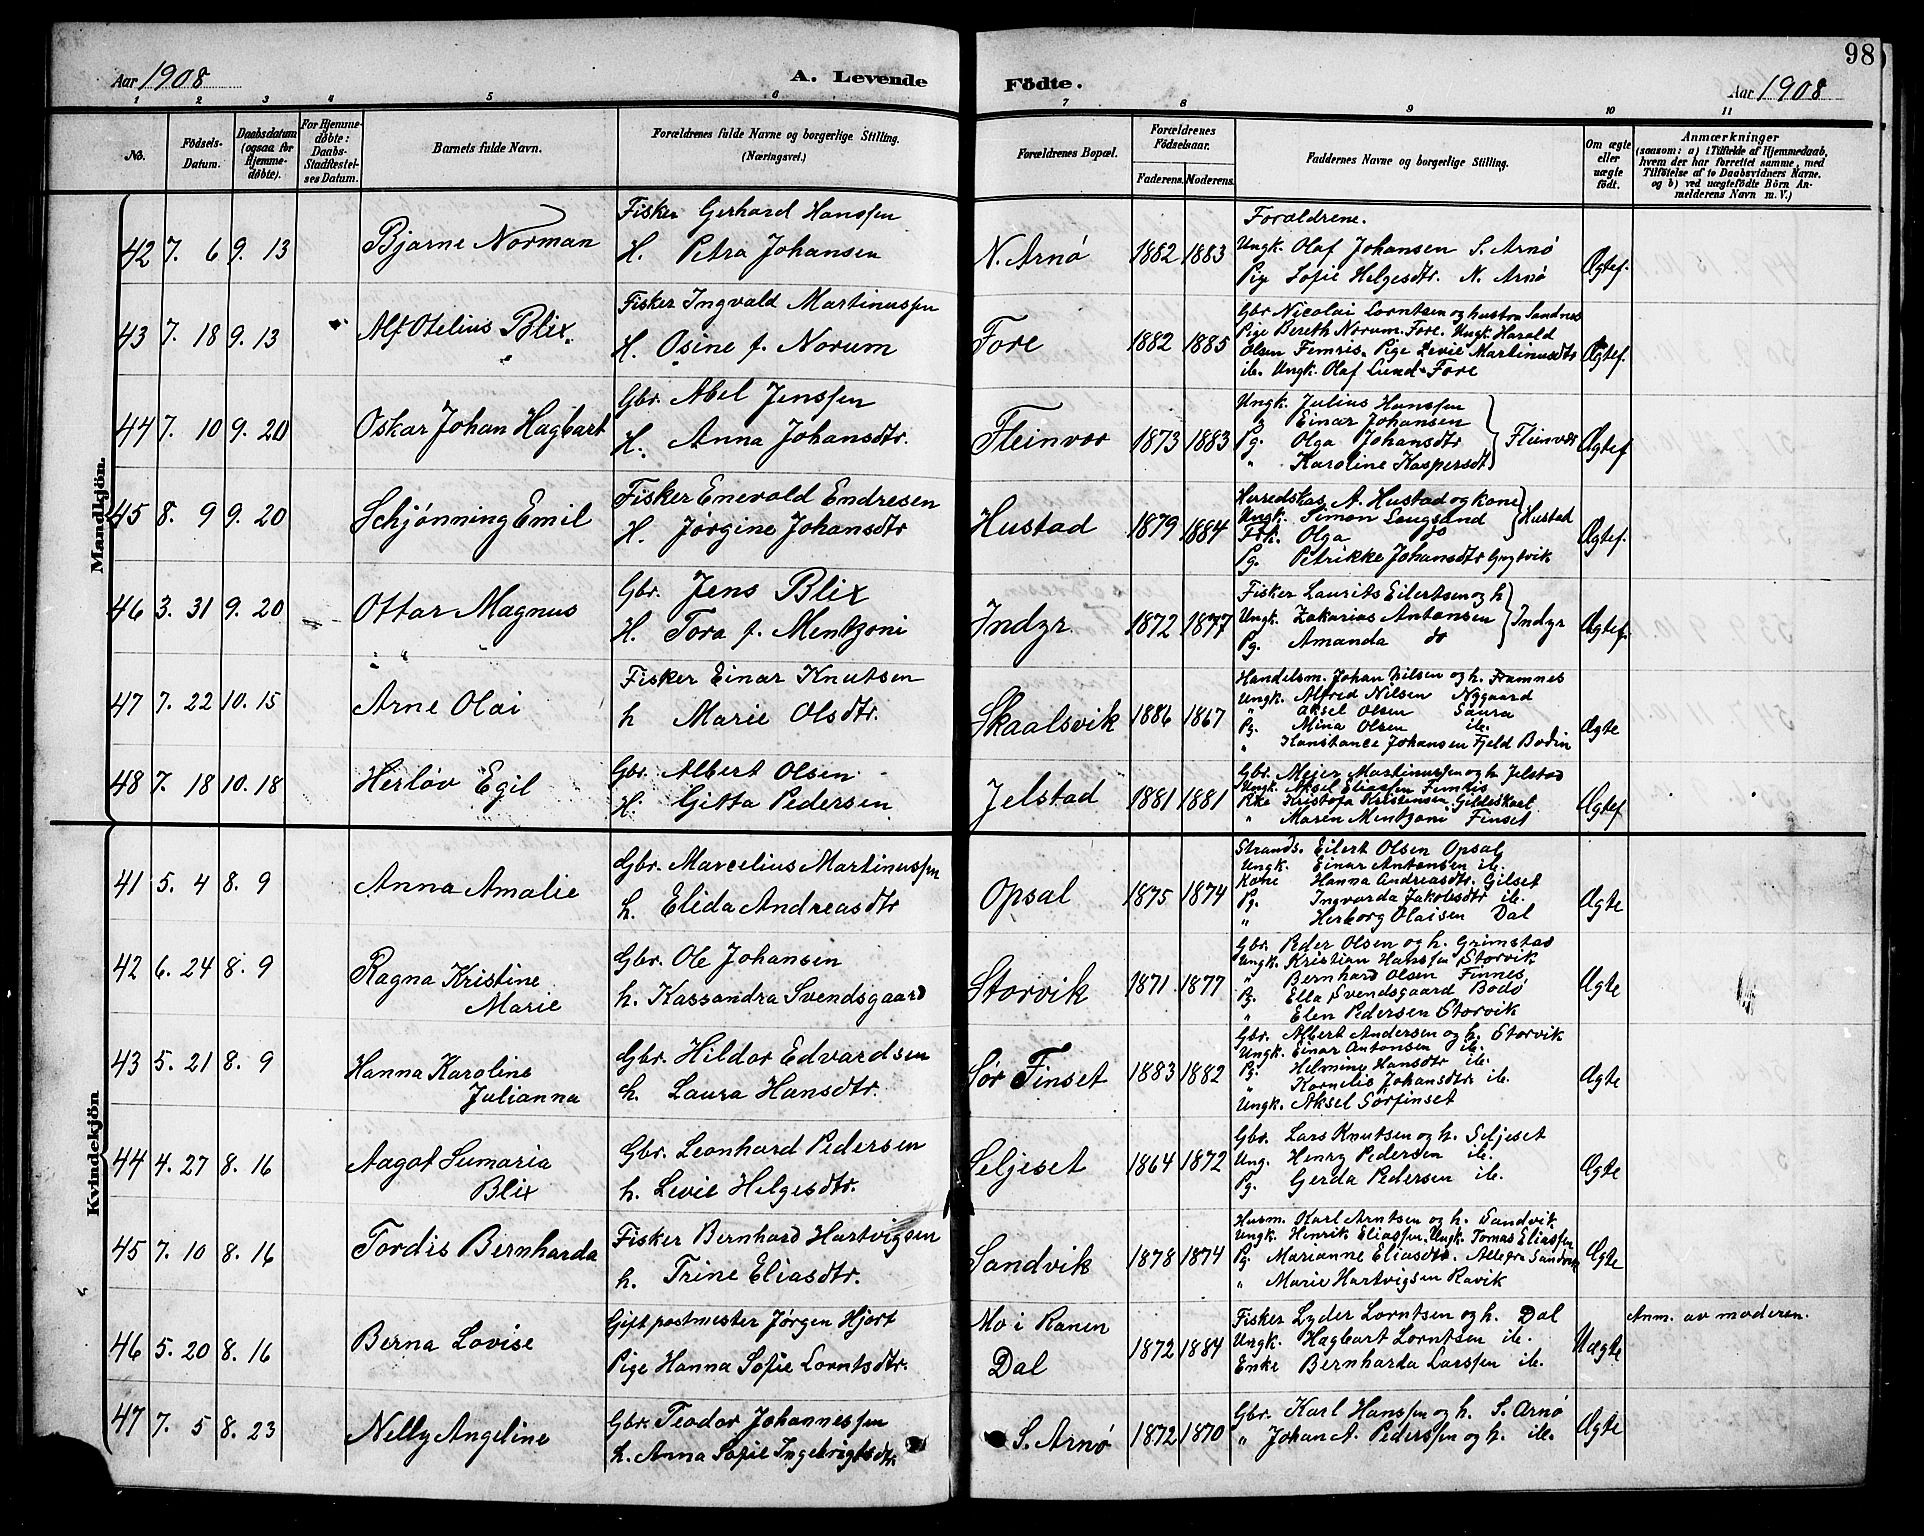 98
Aar 1908
A. Levende
Födte.
Aar 1908
1 2 3 4 5 6 7 8 9 10 11
No.
Födsels-Datum.
Daabsdatum (ogsaa for Hjemme-døbte).
For Hjemme-døbte: Daabs-Stadfæstel-ses Datum.
Barnets fulde Navn.
Forældrenes fulde Navne og borgerlige Stilling. (Næringsvei.)
Forældrenes Bopæl.
Forældrenes Födselsaar.
Faderens. Moderens.
Faddernes Navne og borgerlige Stilling.
Om ægte eller uægte födt.
Anmærkninger
(saasom: a) i Tilfælde af Hjemmedaab, hvem der har forrettet samme, med Tilföielse af to Daabsvidners Navne. og b) ved uægtefödte Börn An-melderens Navn m. V.)
Mandkjön.
42 7. 6 9. 13 Bjarne Norman
Fisker Gerhard Hanssen
H. Petra Johansen
N. Arnø 1882 1883
Forældrene.
Ungk. Olaf Johansen S. Arnø
Pig Sofie Helgesdtr. N. Arnø
Ægtef.
43 7. 18 9. 13 Alf Otelius Blix.
Fisker Ingvald Martinussen
H. Osine f. Norum
Fore 1882 1885
Gbr Nicolai Lorntsen og hustru Sandnes
Pige Bereth Norum. Fore. Ungk. Harald
Olsen Femris. Pige Levie Martinusdtr
ib. Ungk. Olaf Lund Fore
Ægtef.
44 7. 10 9. 20 Oskar Johan Hagbart
Gbr. Abel Jenssen
H. Anna Johansdtr.
Fleinvær 1873 1883
Ungk. Julius Hanssen
" Einar Johansen
Pg. Olga Johansdtr
" Karoline Kaspersdt
Fleinvær
Ægtef
45 8. 9 9. 20 Schjønning Emil
Fisker Enevald Endresen
H. Jørgine Johansdtr
Hustad 1879 1884
Herredskas. A. Hustad og kone
Ungk. Simon Langsand
Frk. Olga do
Hustad
Pg. Petrikke Johansdtr
Ægtef.
46 3. 31 9. 20 Ottar Magnus
Gbr. Jens Blix
H. Tora f. Mentzoni
Indyr 1872 1877
Fisker Laurits Eilertsen og h
Ungk. Zakarias Antonsen
Pg. Amanda do
Indyr
Ægtef.
47 7. 22 10. 15 Arne Olai
Fisker Einar Knutsen
h Marie Olsdtr.
Skaalsvik 1886 1867
Handelsm. Johan Nilsen og h. Framnes
Ungk. Alfred Nilsen Nygaard
" Aksel Olsen Saura
Pg. Mina Olsen ib.
" Konstance Johansen Fjeld Bodin
Ægte
48 7. 18 10. 18 Herløv Egil
Gbr. Albert Olsen
H. Gitta Pedersen
Jelstad 1881 1881
Gbr. Meier Martinussen og h. Jelstad
Ungk. Aksel Eliassen Femris
Pike Kristofa Kristensen Gildeskaal
" Maren Mentzoni Finset
Ægtef
Kvindekjön
41 5. 4 8. 9 Anna Amalie
Gbr. Marcelius Martinussen
h. Elida Andreasdtr
Opsal 1875 1874
Strands. Eilert Olsen Opsal
Ungk. Einar Antonsen ib.
Kone Hanna Andreasdtr. Gilset
Pg. Ingvarda Jakobsdtr ib.
" Herborg Olaisen Dal
Ægte
42 6. 24 8. 9 Ragna Kristine
Marie
Gbr. Ole Johansen
h. Kassandra Svendsgaard
Storvik 1871 1877
Gbr. Peder Olsen og h. Grimstad
Ungk. Kristian Hanssen Storvik
" Bernhard Olsen Finnes
Pg. Ella Svendsgaard Bodø
" Elen Pedersen Storvik
Ægte
43 5. 21 8. 9 Hanna Karoline
Julianna
Gbr. Hildor Edvardsen
h. Laura Hansdtr.
Sør Finset 1883 1882
Gbr. Albert Andersen og h. Storvik
Ungk. Einar Antonsen ib.
Pg. Helmine Hansdtr ib.
" Kornelis Johansdtr. ib.
Ungk. Aksel Sørfinset
Ægte
44 4. 27 8. 16 Aagot Sumaria
Blix
Gbr. Leonhard Pedersen
h. Levie Helgesdtr.
Seljeset 1864 1872
Gbr. Lars Knutsen og h. Seljeset
Ung. Henry Pedersen ib.
Pg. Gerda Pedersen ib.
Ægte
45 7. 10 8. 16 Tordis Bernharda
Fisker Bernhard Hartvigsen
h. Trine Eliasdtr.
Sandvik 1878 1874
Husm. Karl Arntsen og h. Sandvik
Ungk. Henrik Eliassen, Ungk. Tomas Eliassen
Pg. Marianne Eliasdtr. Alle fra Sandvik
" Marie Hartvigsen Ravik
Ægte
46 5. 20 8. 16 Berna Lovise
Gift postmester Jørgen Hjort
Pige Hanna Sofie Lorntsdtr.
Mo i Ranen
Dal 1872 1884
Fisker Lyder Lorntsen og h. Dal
Ungk. Hagbart Lorntsen ib.
Enke Bernharda Larssen ib.
Uægte
Anm. av moderen.
47 7. 5 8. 23 Nelly Angeline
Gbr. Teodor Johannessen
h. Anna Sofie Ingebrigtsdtr.
S. Arnø 1872 1870
Gbr. Karl Hanssen og h. S. Arnø
" Johan A. Pederssen og h. ib.
Ægte